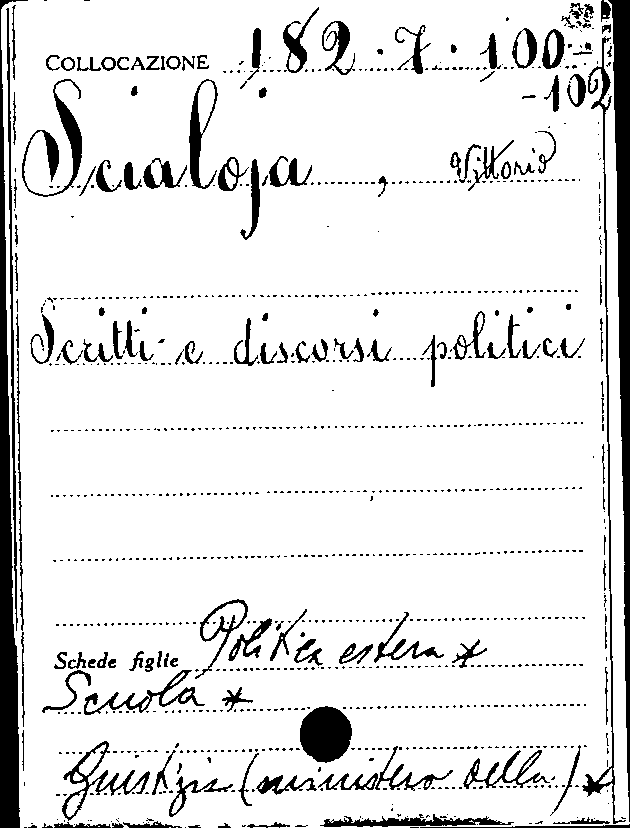 COLLOCAZIONE 182.7.100-
-102
Scialoja, Vittorio
Scritti e discorsi politici
Schede figlie Politica estera *
Scuola *
Giustizia (ministero della) *